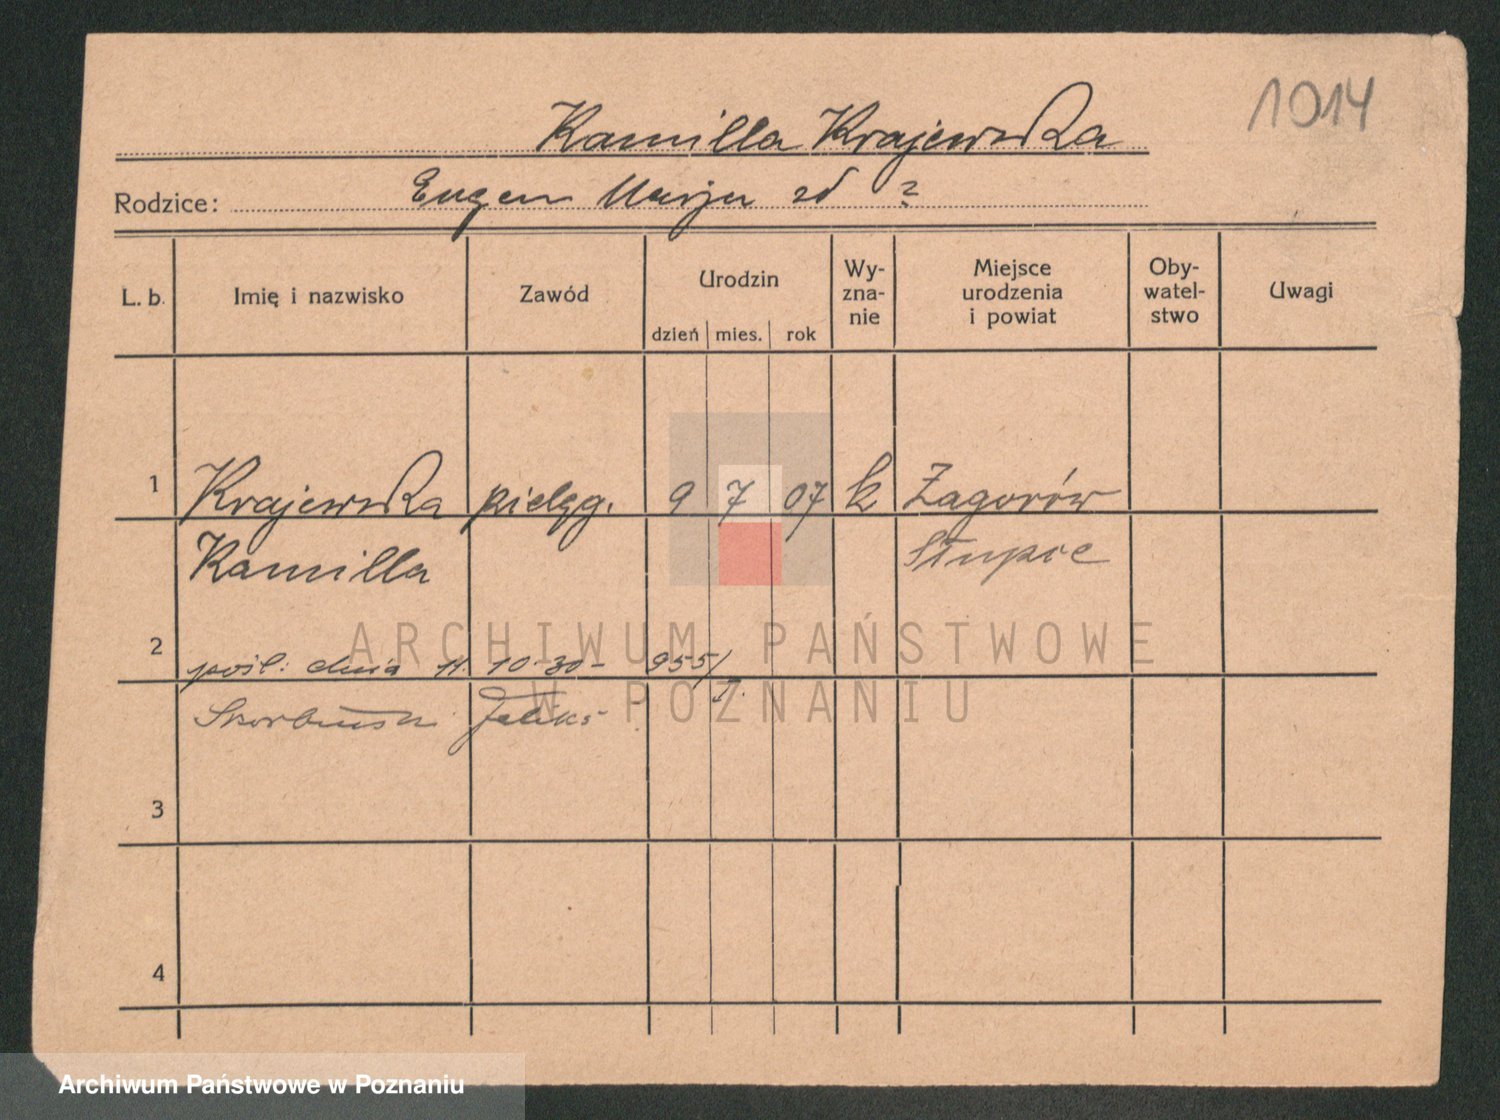 1014
Kamilla Krajewska
Rodzice: Eugen Marja zd ?
L. b. Imię i nazwisko Zawód Urodzin Wy-zna-nie Miejsce urodzenia i powiat Oby-watel-stwo Uwagi
dzień mies. rok
1 Krajewska pielęg. 9 7 07 k Zagorów
Kamilla Słupce
2 pośl: dnia 11. 10-30- 955/
Feliks
3
4
ARCHIWUM PAŃSTWOWE
W POZNANIU
Archiwum Państwowe w Poznaniu